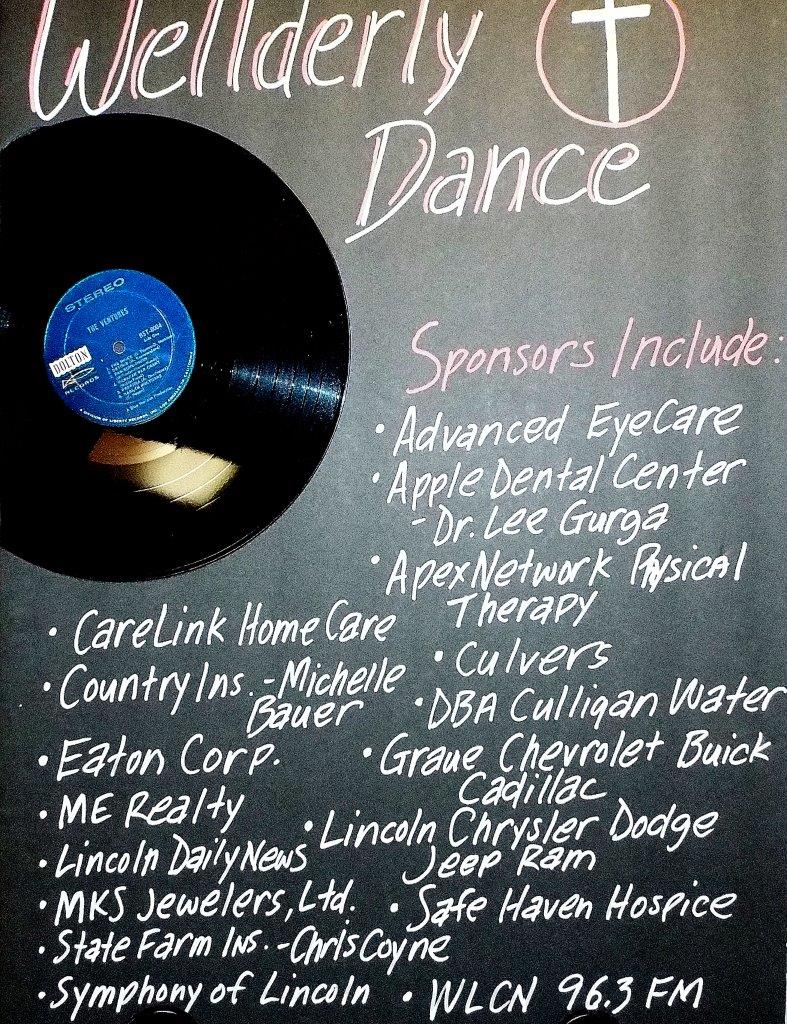 Wellderly
Dance
STEREO
THE VENTURES
BST-8004
DOLTON
RECORDS
Sponsors Include:
• Advanced EyeCare
• Apple Dental Center
- Dr. Lee Gurga
• ApexNetwork Physical
Therapy
• CareLink HomeCare
• Culvers
• Country Ins. - Michelle
Bauer
• DBA Culligan Water
• Eaton Corp.
• Graue Chevrolet Buick
Cadillac
• ME Realty
• Lincoln Chrysler Dodge
Jeep Ram
• Lincoln DailyNews
• MKS Jewelers, Ltd.
• Safe Haven Hospice
• State Farm Ins. - Chris Coyne
• Symphony of Lincoln
• WLCN 96.3 FM